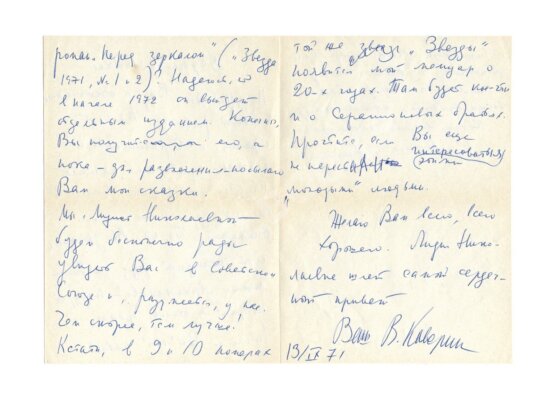 роман „Перед зеркалом“ („Звезда
1971, № 1 и 2)? Надеюсь, что
в начале 1972 он выйдет
отдельным изданием. Конечно,
Вы получите его, а
пока – для развлечения – посылаю
Вам мои сказки.
Мы с Лидией Николаевной
будем бесконечно рады
увидеть Вас в Советском
Союзе и, разумеется, у нас.
Чем скорее, тем лучше!
Кстати, в 9 и 10 номерах
той же „Звезды“
появится мой мемуар о
20-х годах. Там будет кое-что
и о Серапионовых братьях.
Простите, если Вы еще
не перестали интересоваться
этими
„молодыми“ людьми.
Желаю Вам всего, всего
хорошего. Лидия Нико-
лаевна шлет самый сердеч-
ный привет
Ваш В. Каверин
13/IX 71